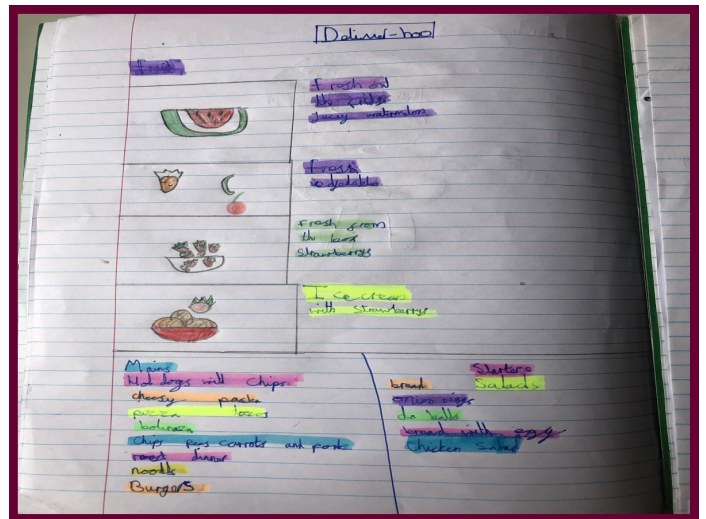 Deliver-boo
Fruit
Fresh out
the fridge
Juicy watermelon
Fresh
vegetables
Fresh from
the box
strawberrys
Ice cream
with strawberrys
Mains
Hot dogs with chips
cheesy pasta
pizza
Chips peas carrots and pork
roast dinner
noodls
Burgers
Starters
bread Salads
onion rings
do balls
bread with egg
Chicken Salad